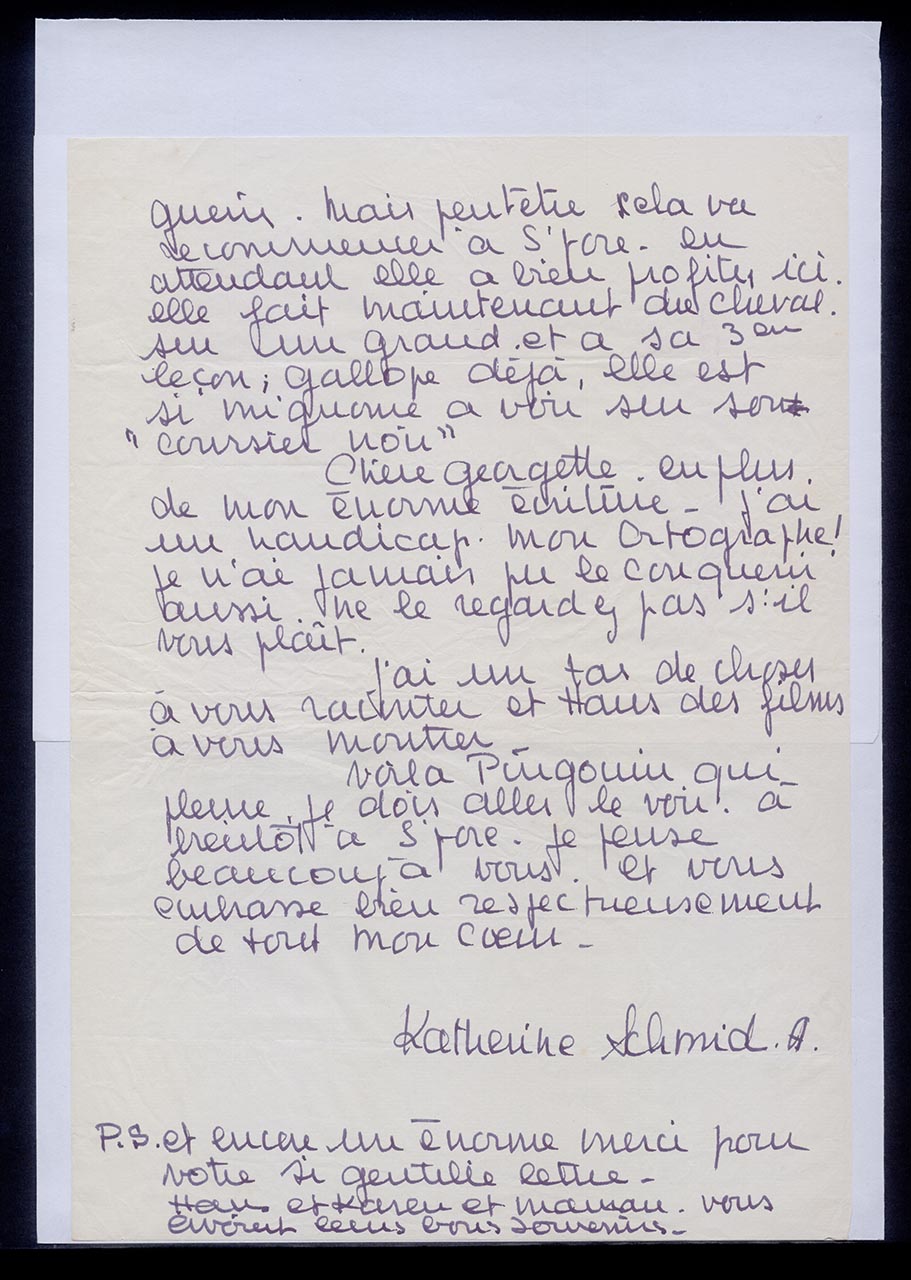 guerir. Mais peut être cela va
recommencer à S'pore. en
attendant elle a bien profité, ici.
elle fait maintenant du cheval.
sur un grand. et a sa 3em
leçon; gallope déjà, elle est
si mignonne a voir sur son
"coursier noir"
Chère georgette. en plus.
de mon énorme écriture - j'ai
un handicap. mon Ortographe!
je n'ai jamais pu le conquerir
aussi. ne le regardez pas s'il
vous plaît.
J'ai un tas de choses
à vous raconter et Hans des films
à vous montrer
Voila Pingouin qui
pleure, je dois aller le voir. à
bientôt à S'pore. je pense
beaucoup à vous. et vous
embrasse bien respectueusement
de tout mon Cœur -
Katherine Schmid. A.
P.S. et encore un énorme merci pour
votre si gentille lettre -
Hans et Karen et maman. vous
envoient leurs bons souvenirs -